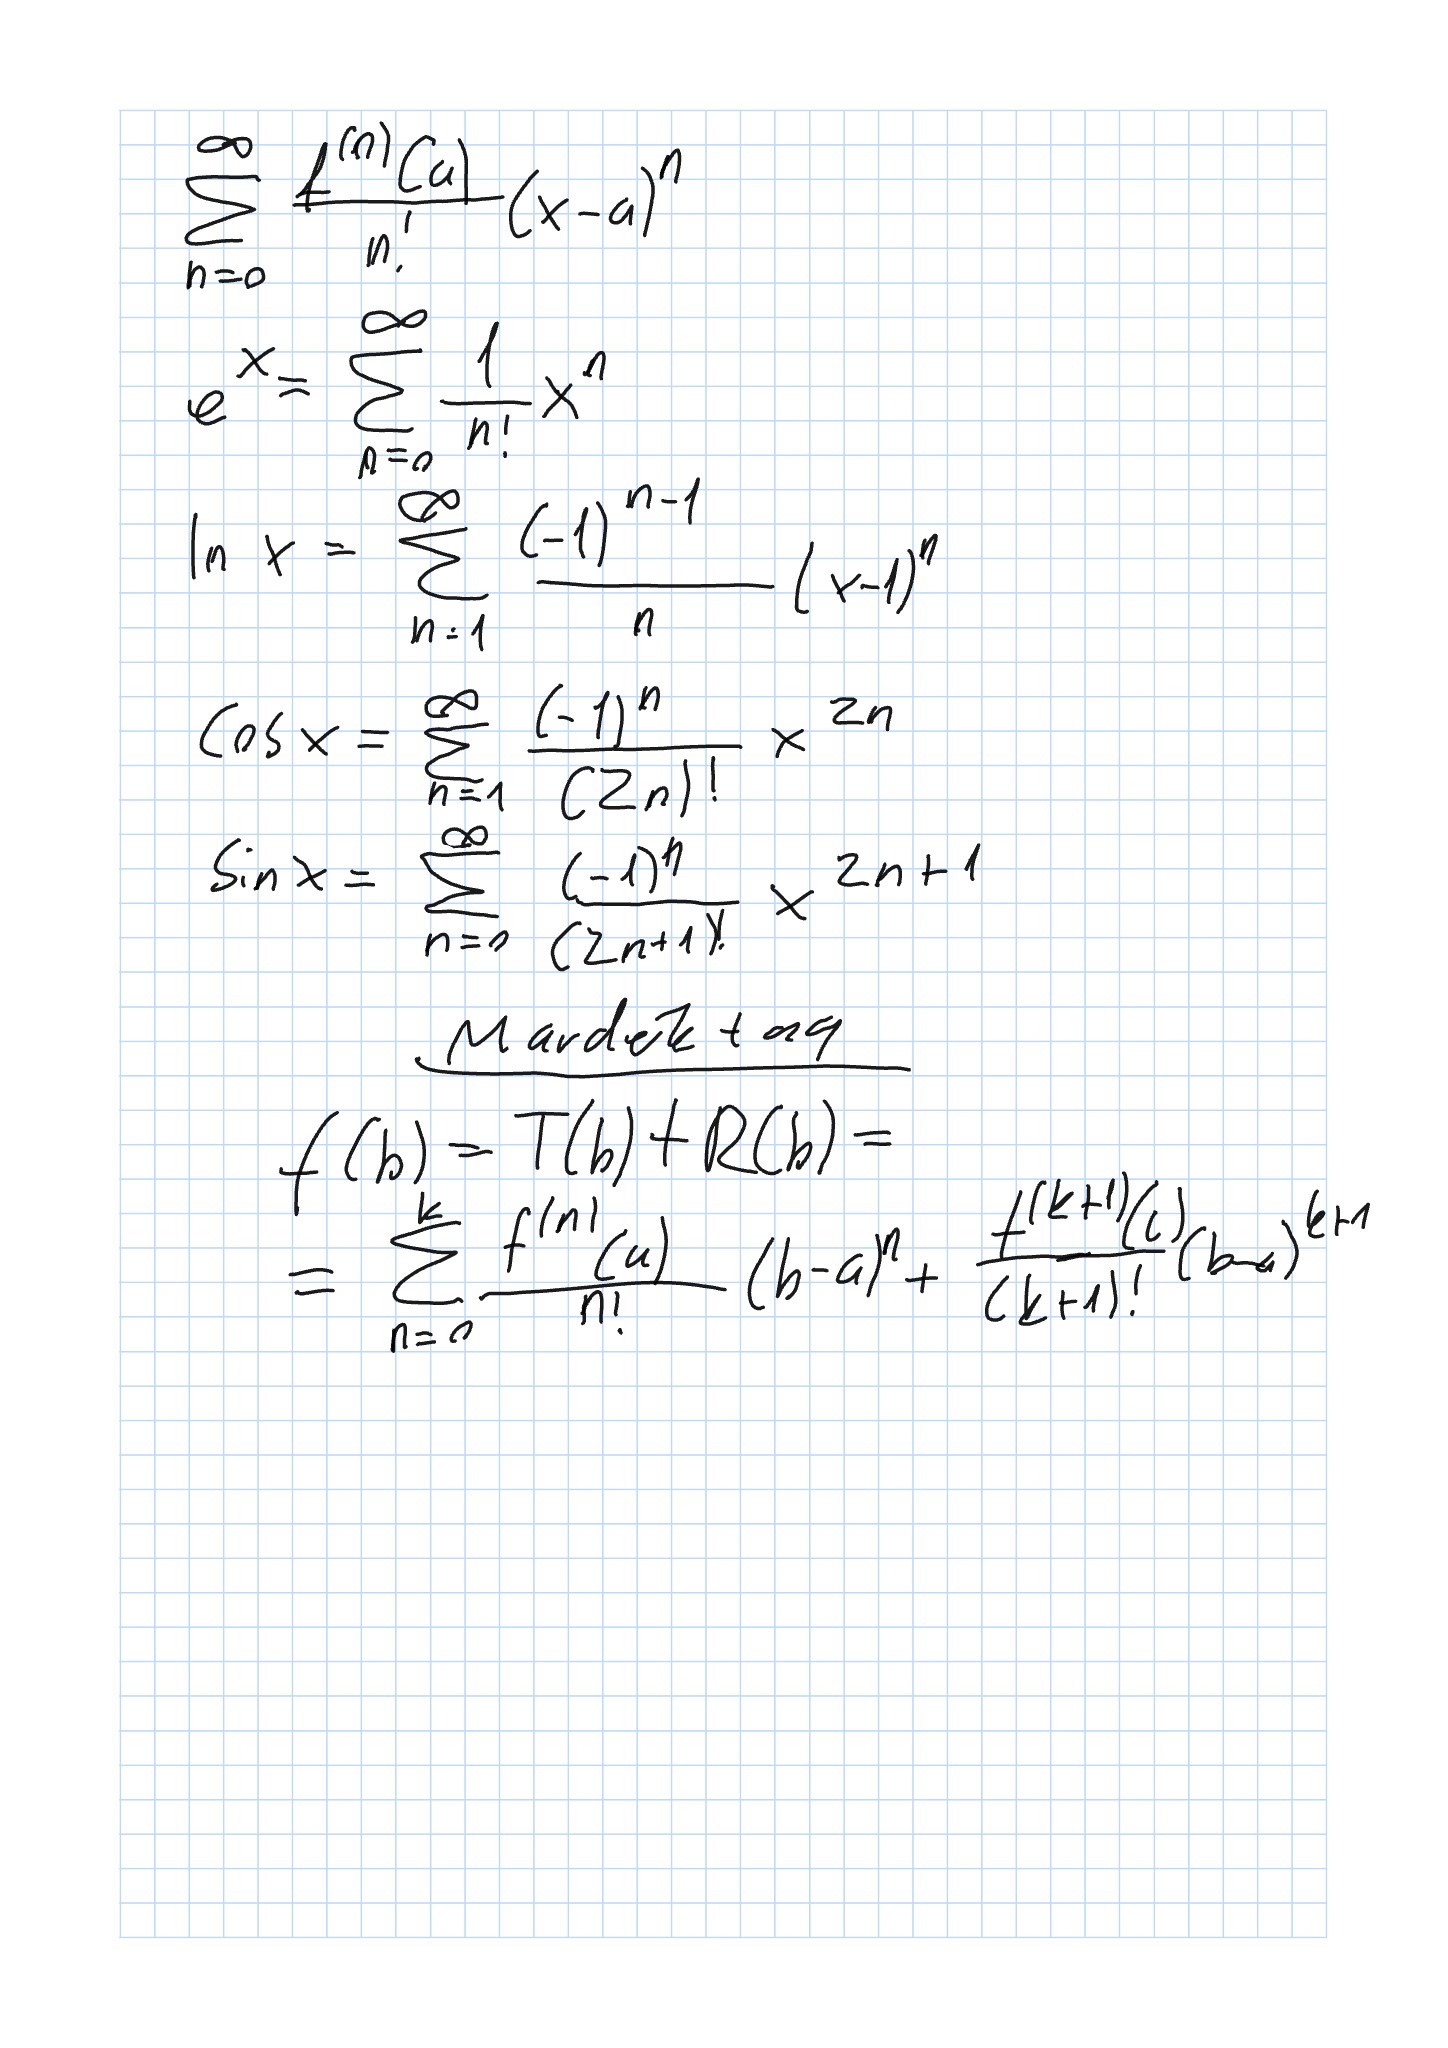 ∑_{n=0}^{∞} f^{(n)}(a)/n! (x-a)^n
e^x = ∑_{n=0}^{∞} 1/n! x^n
ln x = ∑_{n=1}^{∞} (-1)^{n-1}/n (x-1)^n
Cos x = ∑_{n=1}^{∞} (-1)^n/(2n)! x^{2n}
Sin x = ∑_{n=0}^{∞} (-1)^n/(2n+1)! x^{2n+1}
Mardék tag
f(b) = T(b) + R(b) =
= ∑_{n=0}^{k} f^{(n)}(a)/n! (b-a)^n + f^{(k+1)}(c)/(k+1)! (b-a)^{k+1}